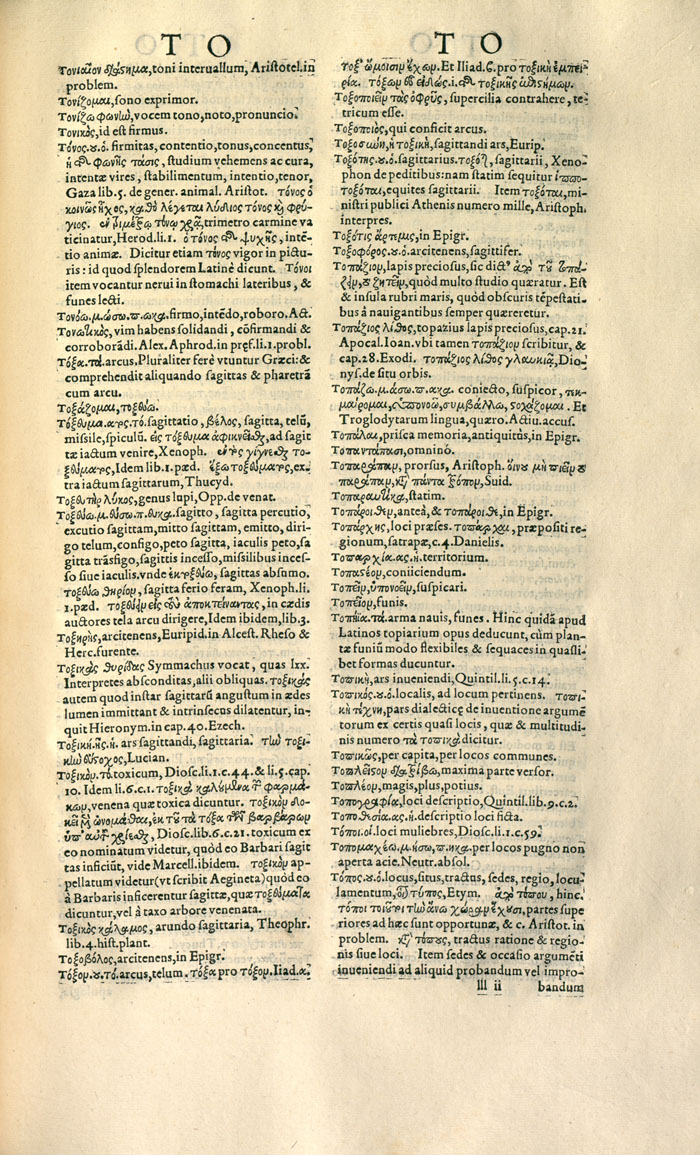 T O
Τονιαῖον διάστημα, toni interuallum, Aristotel. in
problem.
Τονίζομαι, sono exprimor.
Τονίζω φωνίω, vocem tono, noto, pronuncio.
Τονικὸς, id est firmus.
Τόνος. ου. ὁ. firmitas, contentio, tonus, concentus,
ἡ τῆς φωνῆς τάσις, studium vehemens ac cura,
intentæ vires, stabilimentum, intentio, tenor,
Gaza lib. 5. de gener. animal. Aristot. τόνος ὁ
κοινῶς ἦχος, καθὸ λέγεται λύδιος τόνος καὶ φρύ-
γιος. trimetro carmine va
ticinatur, Herod. li. 1. ὁ τόνος τῆς ψυχῆς, intẽ-
tio animæ. Dicitur etiam τόνος vigor in pictu-
ris: id quod splendorem Latinè dicunt. Τόνοι
item vocantur nerui in stomachi lateribus, &
funes lecti.
Τονόω. μ. ώσω. π. ωκα. firmo, intẽdo, roboro. Act.
Τονωτικὸς, vim habens solidandi, cõfirmandi &
corroborãdi. Alex. Aphrod. in pręf. li. 1. probl.
Τόξα. τὰ. arcus. Pluraliter ferè vtuntur Græci: &
comprehendit aliquando sagittas & pharetrã
cum arcu.
Τοξάζομαι, τοξεύω.
Τόξευμα. ατος. τὸ. sagittatio, βέλος, sagitta, telũ,
missile, spiculũ. εἰς τόξευμα ἀφικνεῖσθαι, ad sagit
tæ iactum venire, Xenoph. ἐντὸς γίγνεσθαι το-
ξεύματος, Idem lib. 1. pæd. ἔξω τοξεύματος, ex-
tra iactum sagittarum, Thucyd.
Τοξευτὴρ λύκος, genus lupi, Opp. de venat.
Τοξεύω. μ. εύσω. π. ευκα. sagitto, sagitta percutio,
excutio sagittam, mitto sagittam, emitto, diri-
go telum, configo, peto sagitta, iaculis peto, sa
gitta trãsfigo, sagittis incesso, missilibus inces-
so siue iaculis. vnde ἐκτοξεύω, sagittas absumo.
τοξεύω θηρίον, sagitta ferio feram, Xenoph. li.
1. pæd. τοξεύειν εἰς τοὺς ἀποκτείναντας, in cædis
auctores tela arcu dirigere, Idem ibidem, lib. 3.
Τοξήρης, arcitenens, Euripid. in Alcest. Rheso &
Herc. furente.
Τοξικὰς θυρίδας Symmachus vocat, quas lxx.
Interpretes absconditas, alii obliquas. τοξικὰς
autem quod instar sagittarũ angustum in ædes
lumen immittant & intrinsecus dilatentur, in-
quit Hieronym. in cap. 40. Ezech.
Τοξικὴ. ῆς. ἡ. ars sagittandi, sagittaria. τὴν τοξι-
κὴν εὔστοχος, Lucian.
Τοξικόν. τὸ. toxicum, Diosc. li. 1. c. 44. & li. 5. cap.
10. Idem li. 6. c. 1. τοξικὰ καλούμενα τῶν φαρμά-
κων, venena quæ toxica dicuntur. τοξικὸν δο-
κεῖ ὠνομάσθαι, ἐκ τοῦ τὰ τόξα τῶν βαρβάρων
ὑπ' αὐτοῦ χρίεσθαι, Diosc. lib. 6. c. 21. toxicum ex
eo nominatum videtur, quod eo Barbari sagit
tas inficiũt, vide Marcell. ibidem. τοξικὸν ap-
pellatum videtur (vt scribit Aegineta) quòd eo
à Barbaris inficerentur sagittæ, quæ τοξεύματα
dicuntur, vel à taxo arbore venenata.
Τοξικὸς κάλαμος, arundo sagittaria, Theophr.
lib. 4. hist. plant.
Τοξοβόλος, arcitenens, in Epigr.
Τόξον. ου. τὸ. arcus, telum. τόξα pro τόξον. Iliad. α.
T O
τόξ' ὤμοισιν ἔχων. Et Iliad. ϐ. pro τοξικὴ ἐμπει-
ρία. τόξων εὖ εἰδὼς. i. τῆς τοξικῆς ἐπιστήμων.
Τοξοποιεῖν τὰς ὀφρῦς, supercilia contrahere, te-
tricum esse.
Τοξοποιὸς, qui conficit arcus.
Τοξοσύνη, ἡ τοξικὴ, sagittandi ars, Eurip.
Τοξότης. ου. ὁ. sagittarius. τοξόται, sagittarii, Xeno
phon de peditibus: nam statim sequitur ἱππο-
τοξόται, equites sagittarii. Item τοξόται, mi-
nistri publici Athenis numero mille, Aristoph.
interpres.
Τοξότις ἄρτεμις, in Epigr.
Τοξοφόρος. ου. ὁ. arcitenens, sagittifer.
Τοπάζιον, lapis preciosus, sic dict⁹ ἀπὸ τοῦ τοπά-
ζειν, ζητεῖν, quòd multo studio quæratur. Est
& insula rubri maris, quòd obscuris tẽpestati-
bus à nauigantibus semper quæreretur.
Τοπάζιος λίθος, topazius lapis preciosus, cap. 21.
Apocal. Ioan. vbi tamen τοπάζιον scribitur, &
cap. 28. Exodi. τοπάζιος λίθος γλαυκιᾷ, Dio-
nys. de situ orbis.
Τοπάζω. μ. άσω. π. ακα. coniecto, suspicor, τεκ-
μαίρομαι, ὑπονοῶ, συμβάλλω, στοχάζομαι. Et
Troglodytarum lingua, quæro. Actiu. accus.
Τοπάλαι, prisca memoria, antiquitùs, in Epigr.
Τοπαντάπασι, omnino.
Τοπαράπαν, prorsus, Aristoph. οἴνου μὴ πιεῖν
παράπαν, κατὰ πάντα τρόπον, Suid.
Τοπαραυτίκα, statim.
Τοπάροιθεν, anteà, & τοπάροιθε, in Epigr.
Τοπάρχης, loci præses. τοπάρχαι, præpositi re-
gionum, satrapæ, c. 4. Danielis.
Τοπαρχία. ας. ἡ. territorium.
Τοπαστέον, coniiciendum.
Τοπεῖν, ὑπονοεῖν, suspicari.
Τοπεῖον, funis.
Τοπεῖα. τὰ. arma nauis, funes. Hinc quidã apud
Latinos topiarium opus deducunt, cùm plan-
tæ funiũ modo flexibiles & sequaces in quasli-
bet formas ducuntur.
Τοπικὴ, ars inueniendi, Quintil. li. 5. c. 14.
Τοπικὸς. οῦ. ὁ. localis, ad locum pertinens. Τοπι-
κὴ τέχνη, pars dialecticę de inuentione argumẽ
torum ex certis quasi locis, quæ & multitudi-
nis numero τὰ τοπικὰ dicitur.
Τοπικῶς, per capita, per locos communes.
Τοπλεῖστον διατρίβω, maxima parte versor.
Τοπλέον, magis, plus, potius.
Τοπογραφία, loci descriptio, Quintil. lib. 9. c. 2.
Τοποθεσία. ας. ἡ. descriptio loci ficta.
Τόποι. οἱ. loci muliebres, Diosc. li. 1. c. 59.
Τοπομαχέω. μ. ήσω. π. ηκα. per locos pugno non
aperta acie. Neutr. absol.
Τόπος. ου. ὁ. locus, situs, tractus, sedes, regio, locu
lamentum, τύπος, Etym. ἀπὸ τόπου, hinc.
τόποι τοῦτοι τὴν ἄνω χώραν ἔχουσι, partes supe
riores ad hæc sunt opportunæ, & c. Aristot. in
problem. κατὰ τόπους, tractus ratione & regio-
nis siue loci. Item sedes & occasio argumẽti
inueniendi ad aliquid probandum vel impro-
lll ii bandum